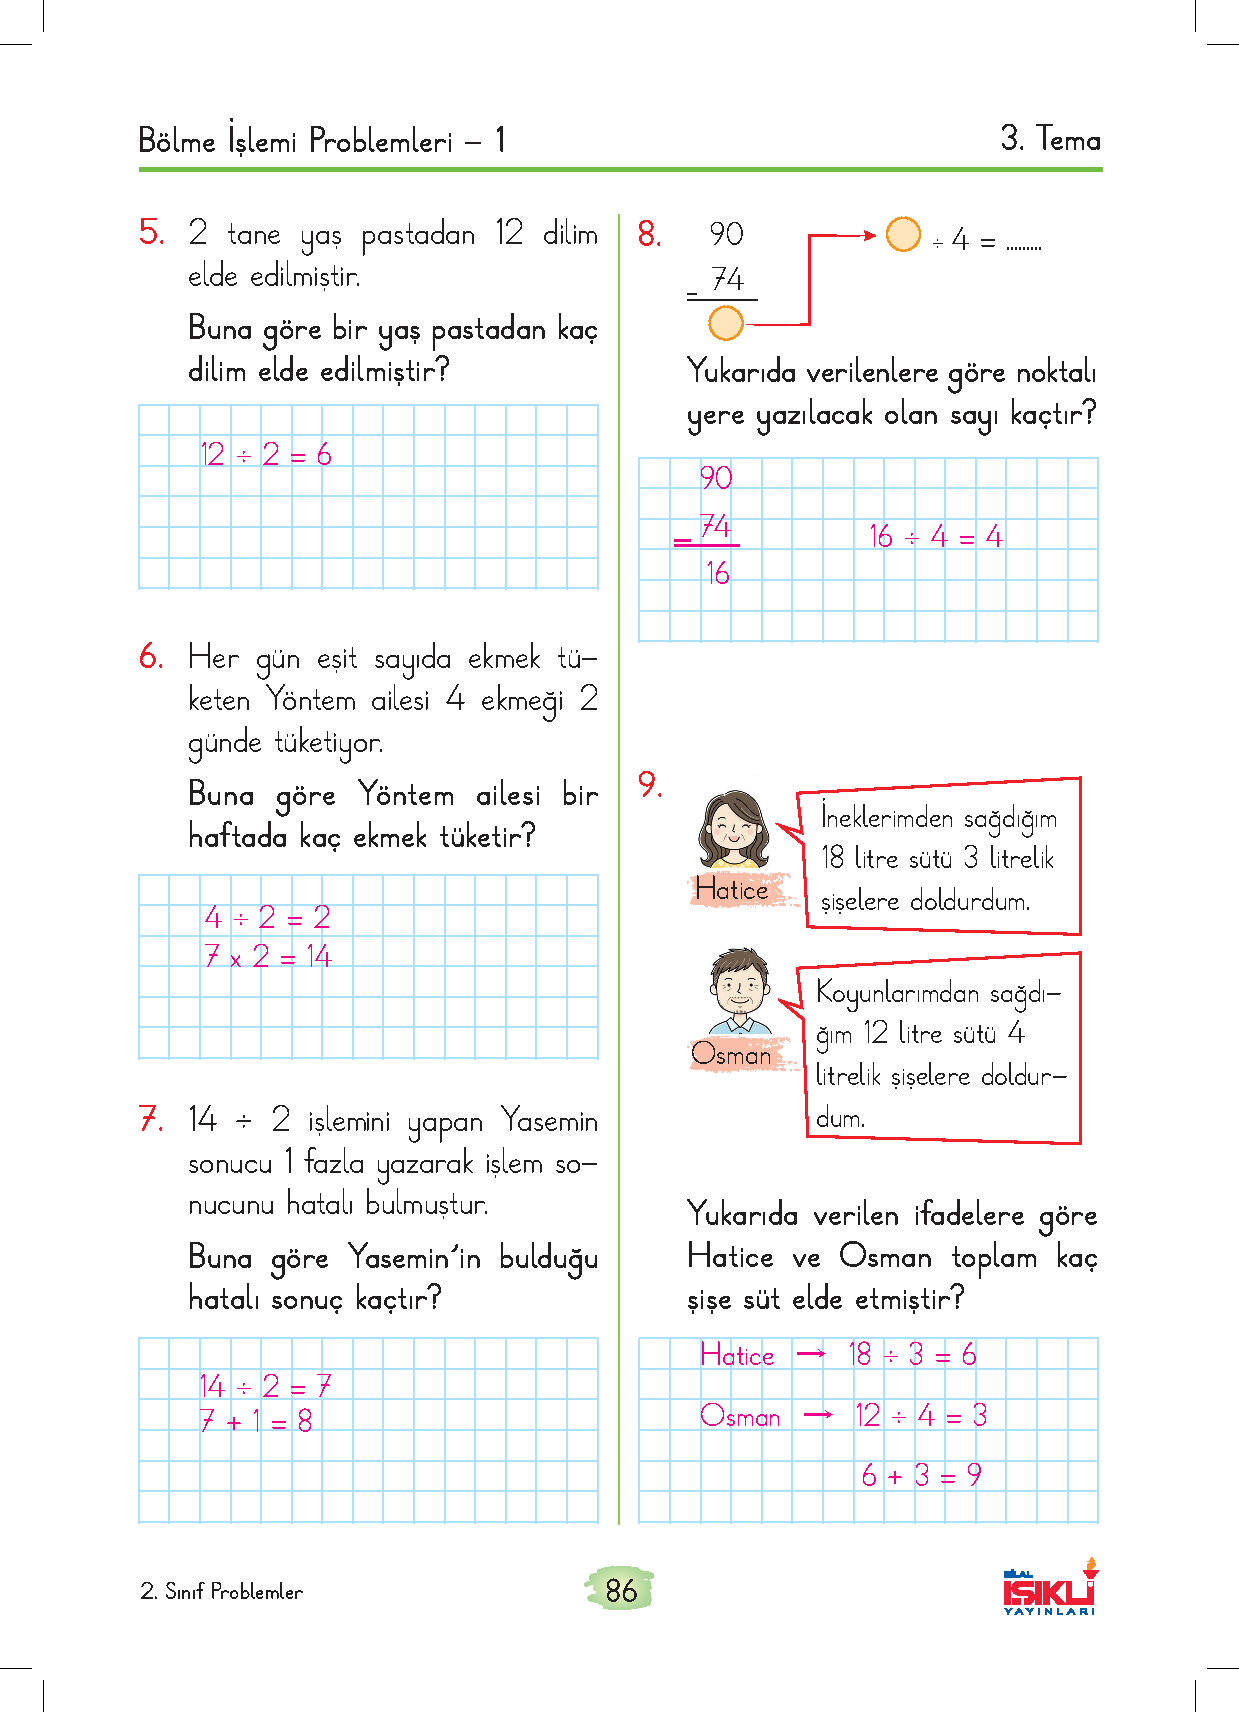 Bölme İşlemi Problemleri – 1
3. Tema
5. 2 tane yaş pastadan 12 dilim
elde edilmiştir.
Buna göre bir yaş pastadan kaç
dilim elde edilmiştir?
12 ÷ 2 = 6
6. Her gün eşit sayıda ekmek tü-
keten Yöntem ailesi 4 ekmeği 2
günde tüketiyor.
Buna göre Yöntem ailesi bir
haftada kaç ekmek tüketir?
4 ÷ 2 = 2
7 x 2 = 14
7. 14 ÷ 2 işlemini yapan Yasemin
sonucu 1 fazla yazarak işlem so-
nucunu hatalı bulmuştur.
Buna göre Yasemin'in bulduğu
hatalı sonuç kaçtır?
14 ÷ 2 = 7
7 + 1 = 8
8. 90
÷ 4 = .........
– 74
Yukarıda verilenlere göre noktalı
yere yazılacak olan sayı kaçtır?
90
– 74
16 ÷ 4 = 4
16
9.
İneklerimden sağdığım
18 litre sütü 3 litrelik
şişelere doldurdum.
Hatice
Koyunlarımdan sağdı-
ğım 12 litre sütü 4
litrelik şişelere doldur-
dum.
Osman
Yukarıda verilen ifadelere göre
Hatice ve Osman toplam kaç
şişe süt elde etmiştir?
Hatice → 18 ÷ 3 = 6
Osman → 12 ÷ 4 = 3
6 + 3 = 9
2. Sınıf Problemler
86
BİLAL
IŞIKLI
YAYINLARI